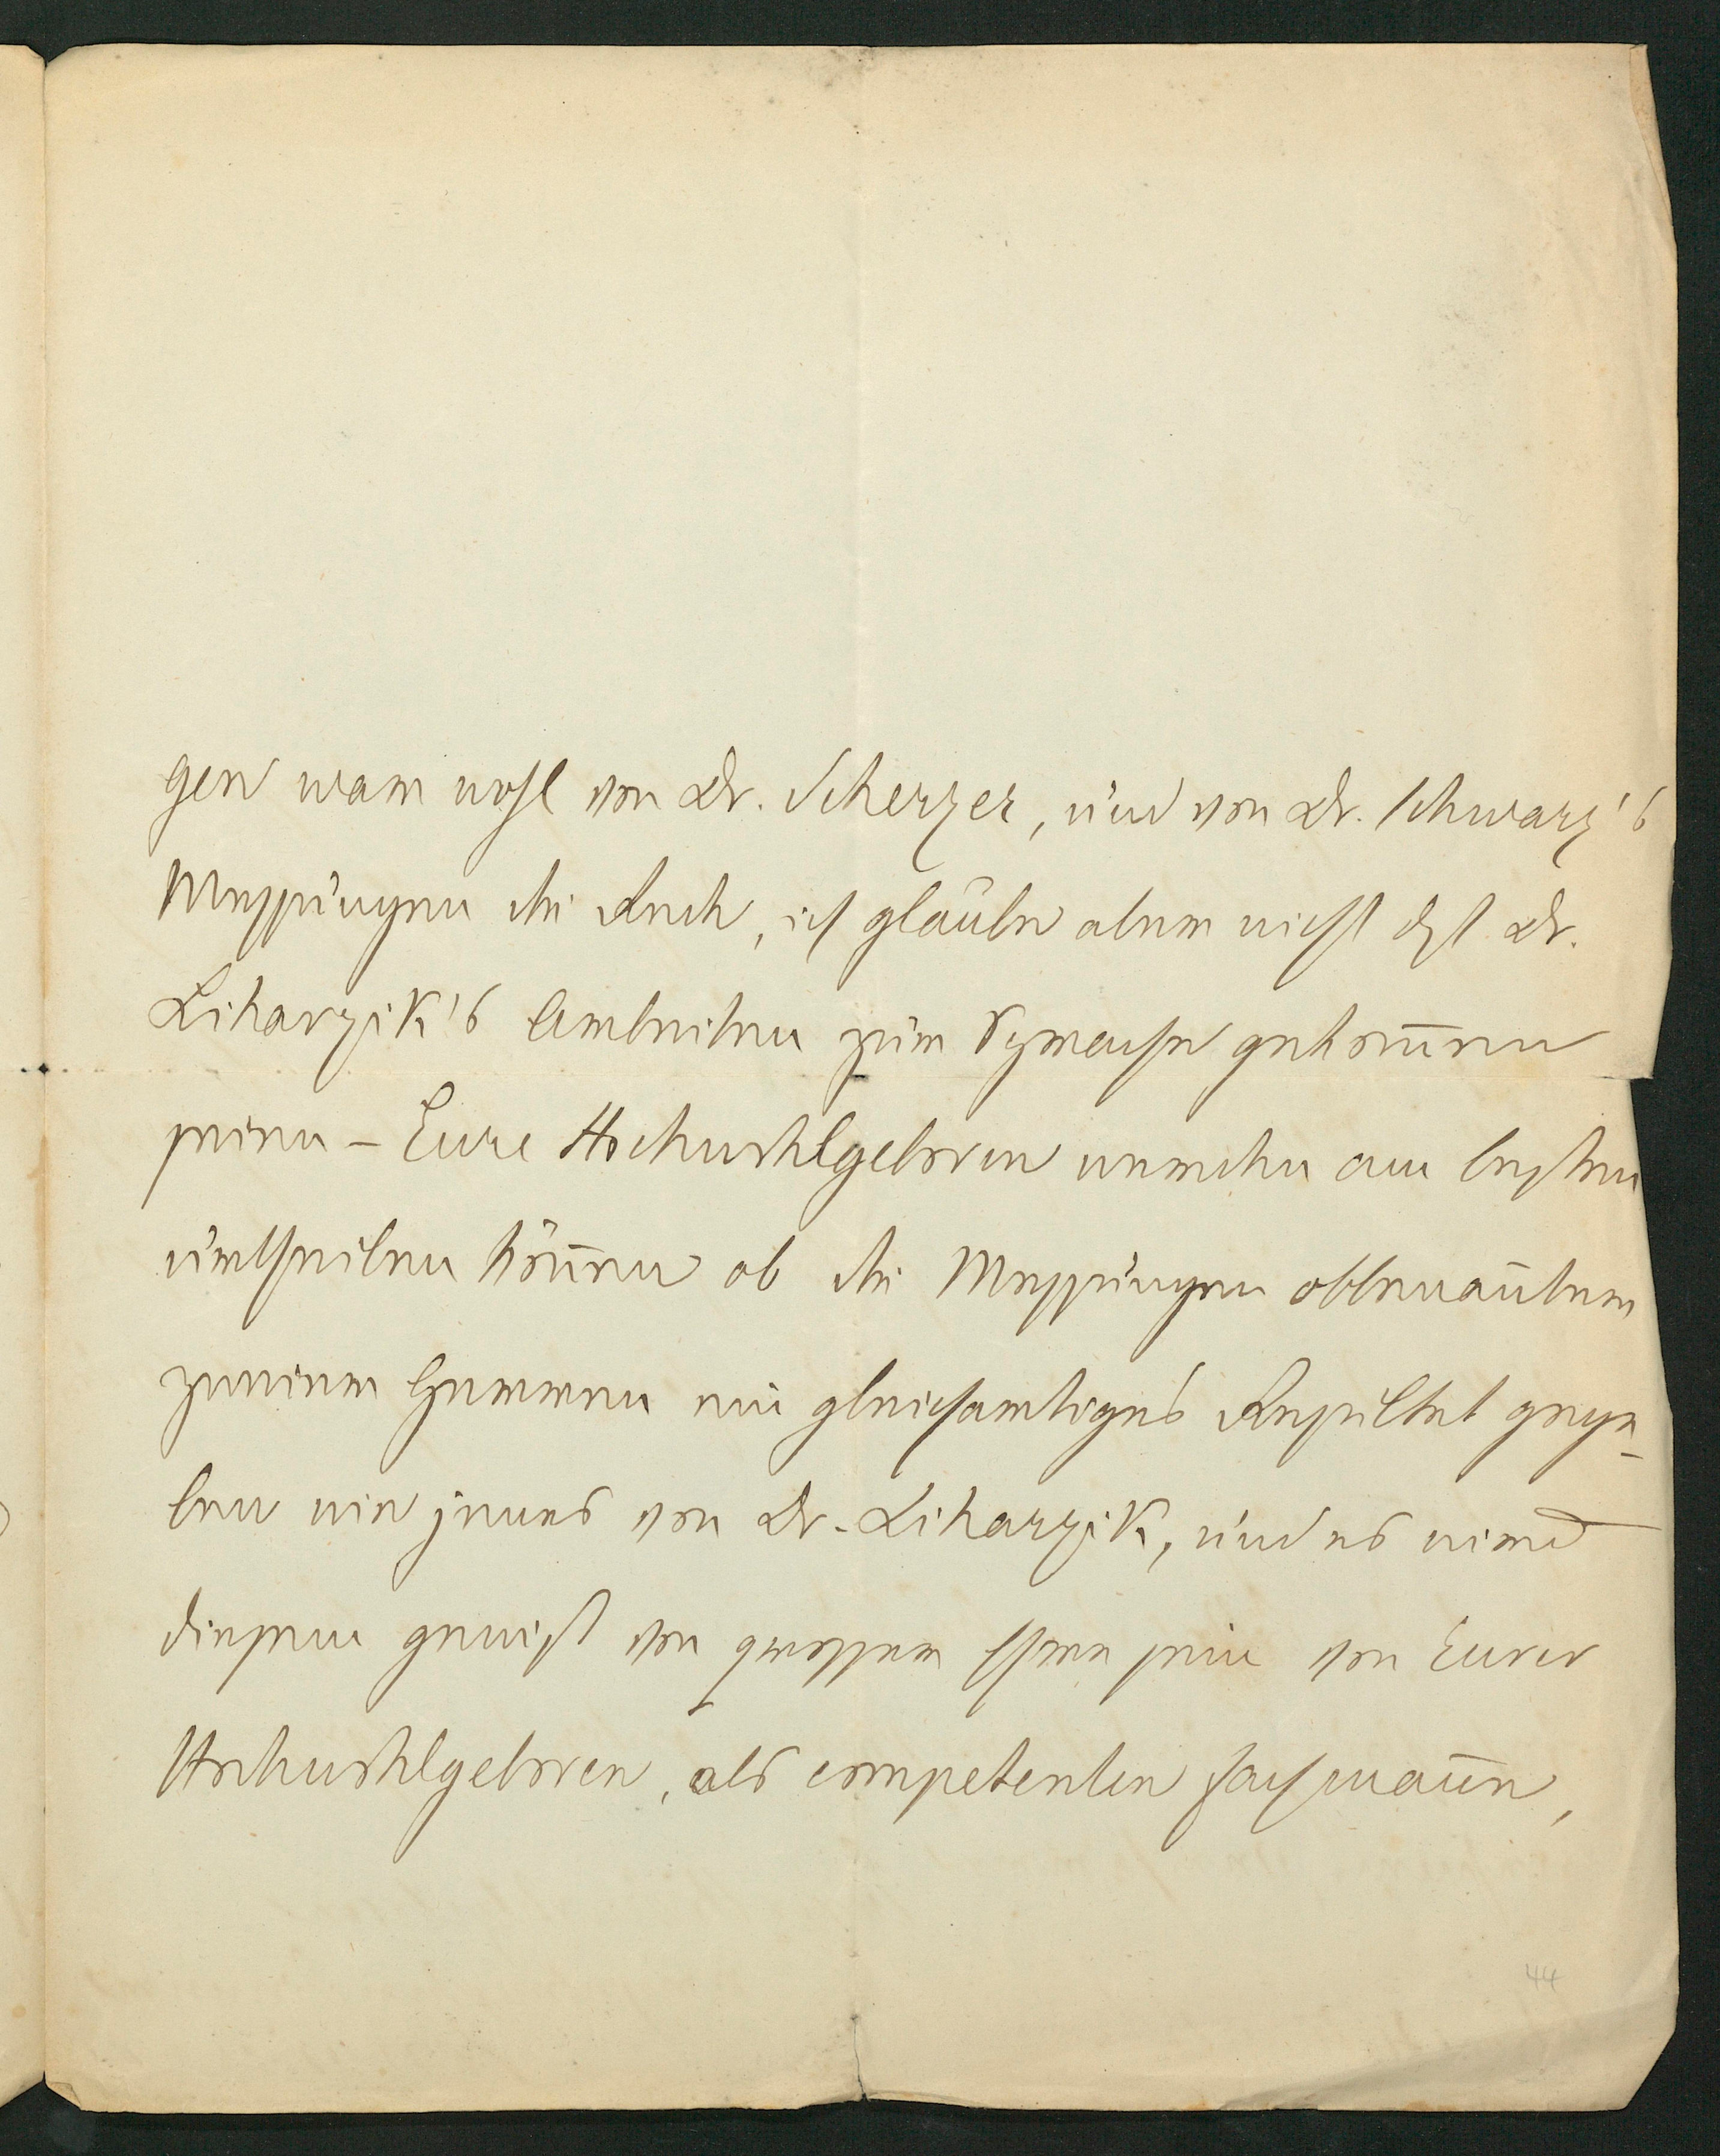 gen war wohl von Dr. Scherzer, und von Dr. Schwarz's
Messungen die Rede, ich glaube aber nicht dß Dr.
Liharzik's Arbeiten zur Sprache gekom̅en
seien – Eure Hochwohlgeboren werden am besten
urtheilen kön̅en ob die Messungen obbenan̅ter
zweier Herren ein gleichartiges Resultat gege-
ben wie jenes von Dr. Liharzik, und es wird
diesem gewiß von grossem sein von Eurer
Hochwohlgeboren, als competenten Fachman̅e,
44